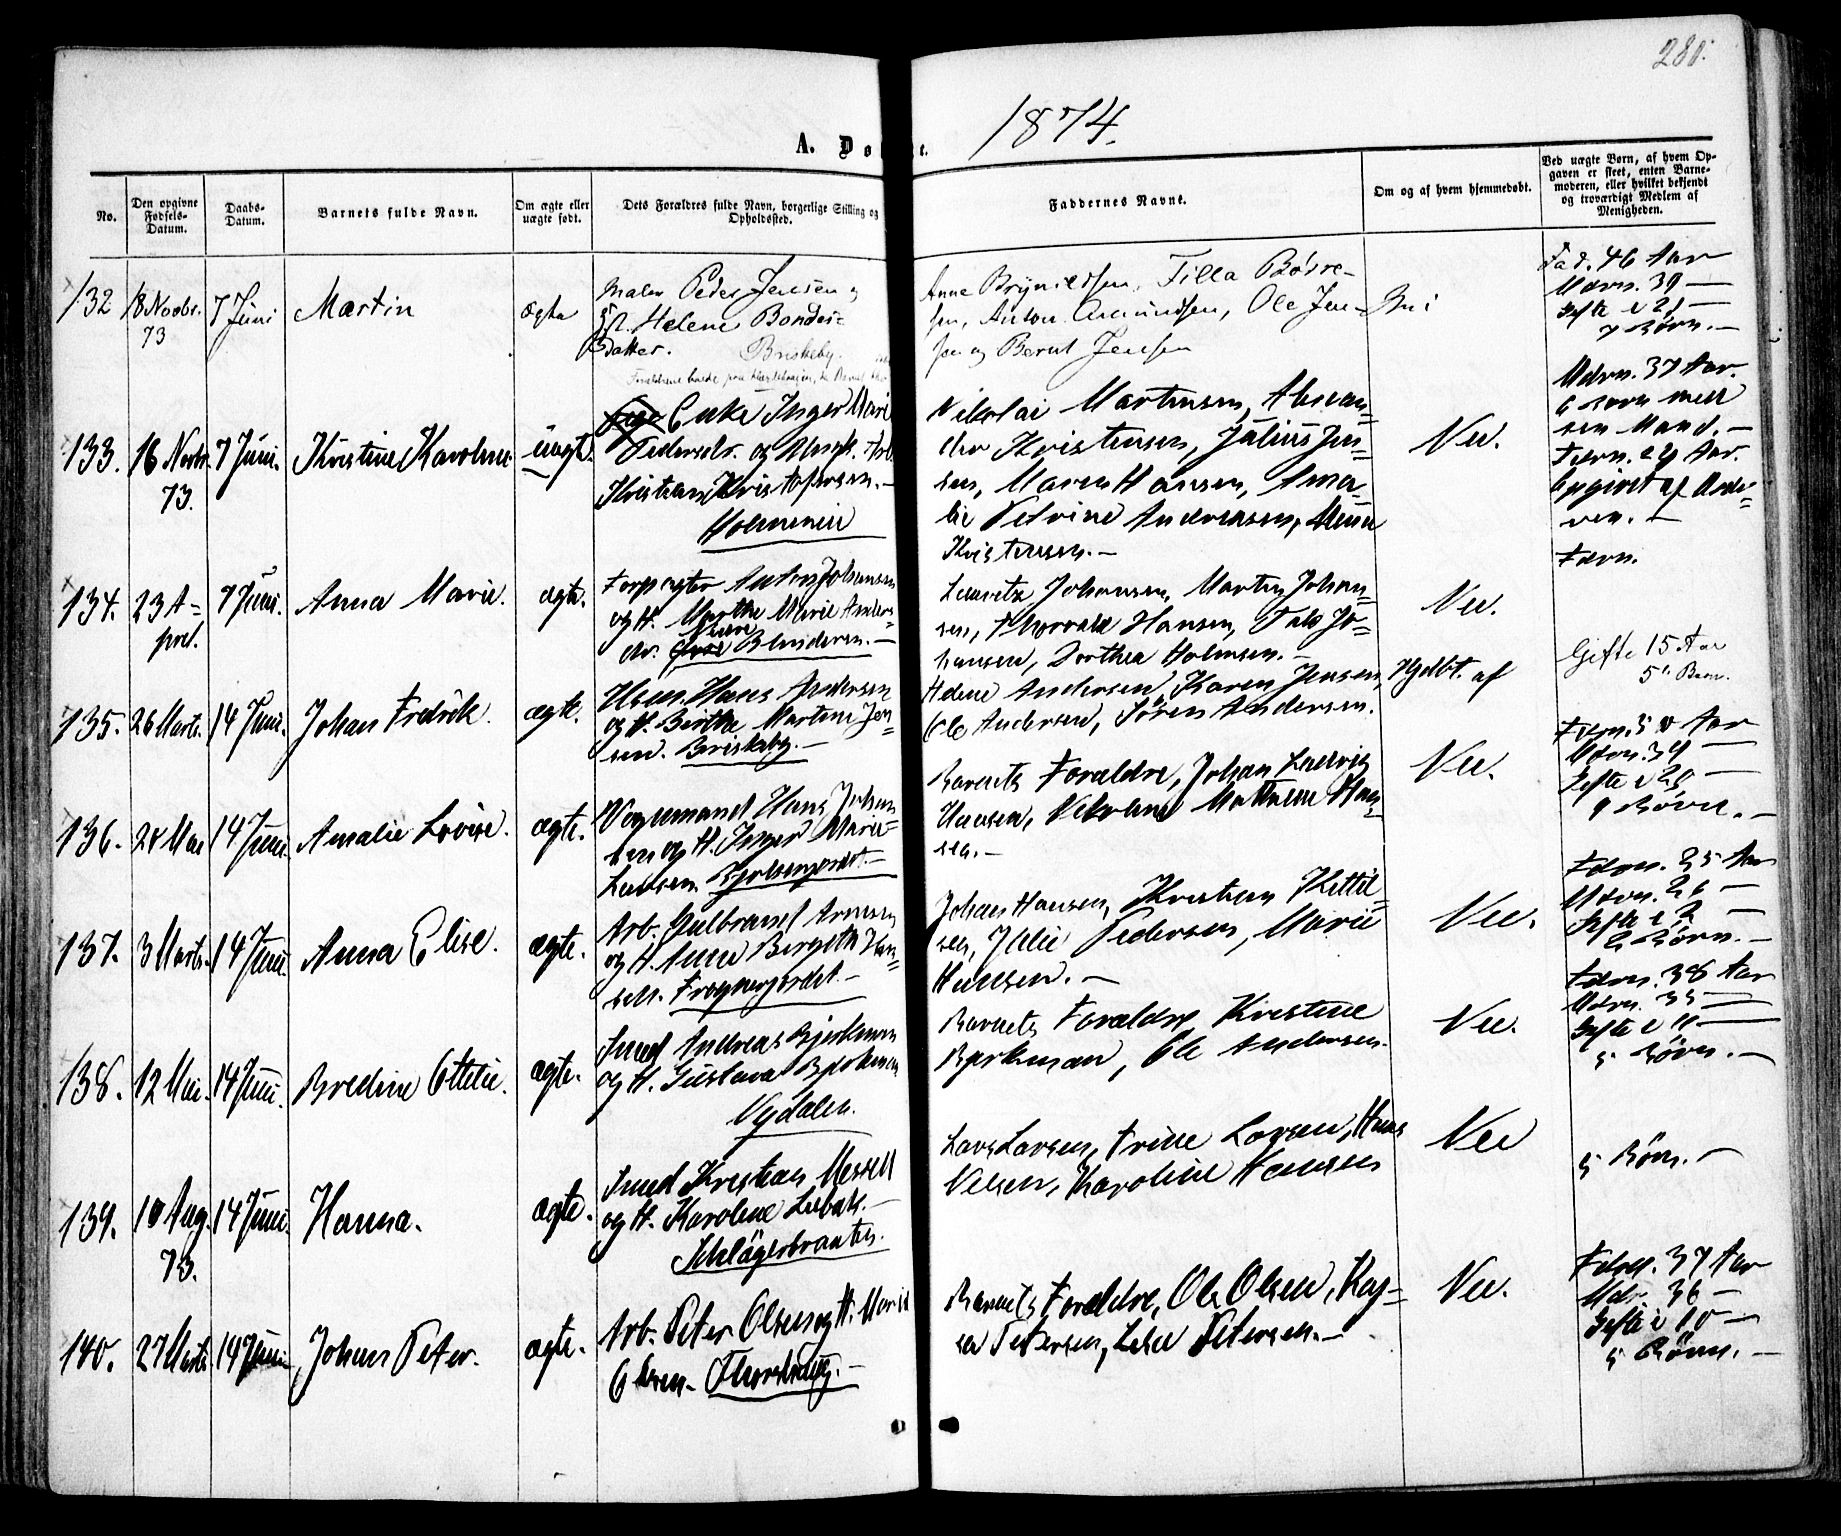 280.
1874.
A. Dø t.
No.
Den opgivne Fødsels-Datum.
Daabs-Datum.
Barnets fulde Navn.
Om ægte eller uægte født.
Dets Forældres fulde Navn, borgerlige Stilling og Opholdssted.
Faddernes Navne.
Om og af hvem hjemmedøbt.
Ved uægte Børn, af hvem Opgaven er skeet, enten Barnemoderen, eller hvilket bekjendt og troværdigt Medlem af Menigheden.
132 18 Novbr. 73 7 Juni Martin ægte
Maler Peder Jensen og
H. Helene Bondes-
Datter. Briskeby.
Anne Brynildsen, Tilla
sen, Anton Amundsen, Ole Jen-
sen og Bernt Jensen
Fad. 46 Aar
Mdrn. 39 —
Gifte i 21 —
7 Børn. —
133. 16 Novbr. 73. 7 Juni. Kristine Karoline uægt.
Enke Inger Marie
Pedersdr. og Ungk. Arb.
Kristian Kristofersen. —
Nikolai Martinsen, Alexan-
der Kristensen, Julius Jen-
sen, Maren Hansen, Ama-
lie Petrine Andreasen,
Kristensen. —
Nei.
Mdrn. 37 Aar.
sin Mand. —
Fdrn. 29 Aar.
Opgivet af Mode-
ren. —
134. 23 A-
pril. 7 Juni. Anna Marie. ægte.
Forpagter Anton Johansen
og H. Marthe Marie Anders-
dr. Blindern. —
Lauritz Johansen, Martin Johan-
sen, Thorvald Hansen, Jo-
hansen, Dorthea Holmsen. —
Nei.
Fdrn.
135. 26 Marts. 14 Juni. Johan Fredrik. ægte.
Hans Andersen
og H. Berthe Martine Jen-
sen. Briskeby. —
Helene Andersen, Karen Jensen,
Ole Andersen, Sören Andersen.
Hjdbt. af
Gifte 15 Aar
5 Barn.
136. 28 Mai 14 Juni. Amalie Lovise. ægte.
Vognmand Hans Johan-
sen og H. Inger Marie
Barnets Forældre, Johan Ludvig
Hansen, Nikoline Mathilde Han-
sen. —
Nei.
Mdrn. 39 —
Gifte i 20 —
9 Børn. —
137. 3 Marts. 14 Juni. Anna Elise. ægte.
Arb. Gulbrand
og H. Anne Birgith Han-
sen. Frognerjordet. —
Johan Hansen, Kristian Kittil-
sen, Julie Pedersen, Marie
Hansen. —
Nei.
Fdrn. 25 Aar
Mdrn. 26 —
Gifte i 2 —
2 Børn. —
138. 12 Mai. 14 Juni. Bredine Ottilie. ægte.
Smed Andreas Bjerkman
og H. Gustava Bjerkman
Barnets Forældre, Kristine
Bjerkman, Ole Andersen.
Nei.
Fdrn. 38 Aar
Mdrn. 35 —
Gifte i 11 —
5 Børn. —
139. 10 Aug. 73. 14 Juni. Hanna. ægte.
Smed Kristian Messell
og H. Karoline —
Lars Larsen, Trine Larsen, Hans
Nilsen, Karoline Hansen
Nei
5 Børn. —
140. 27 Marts. 14 Juni Johan Peter. ægte.
Arb. Peter Olsen og H. Marie
Olsen. Thorshaug. —
Barnets Forældre, Ole Olsen, Kaj-
sa Petersen, Lise Petersen. —
Nei.
Fdrn. 37 Aar
Mdr. 36 —
Gifte i 10 —
5 Børn. —